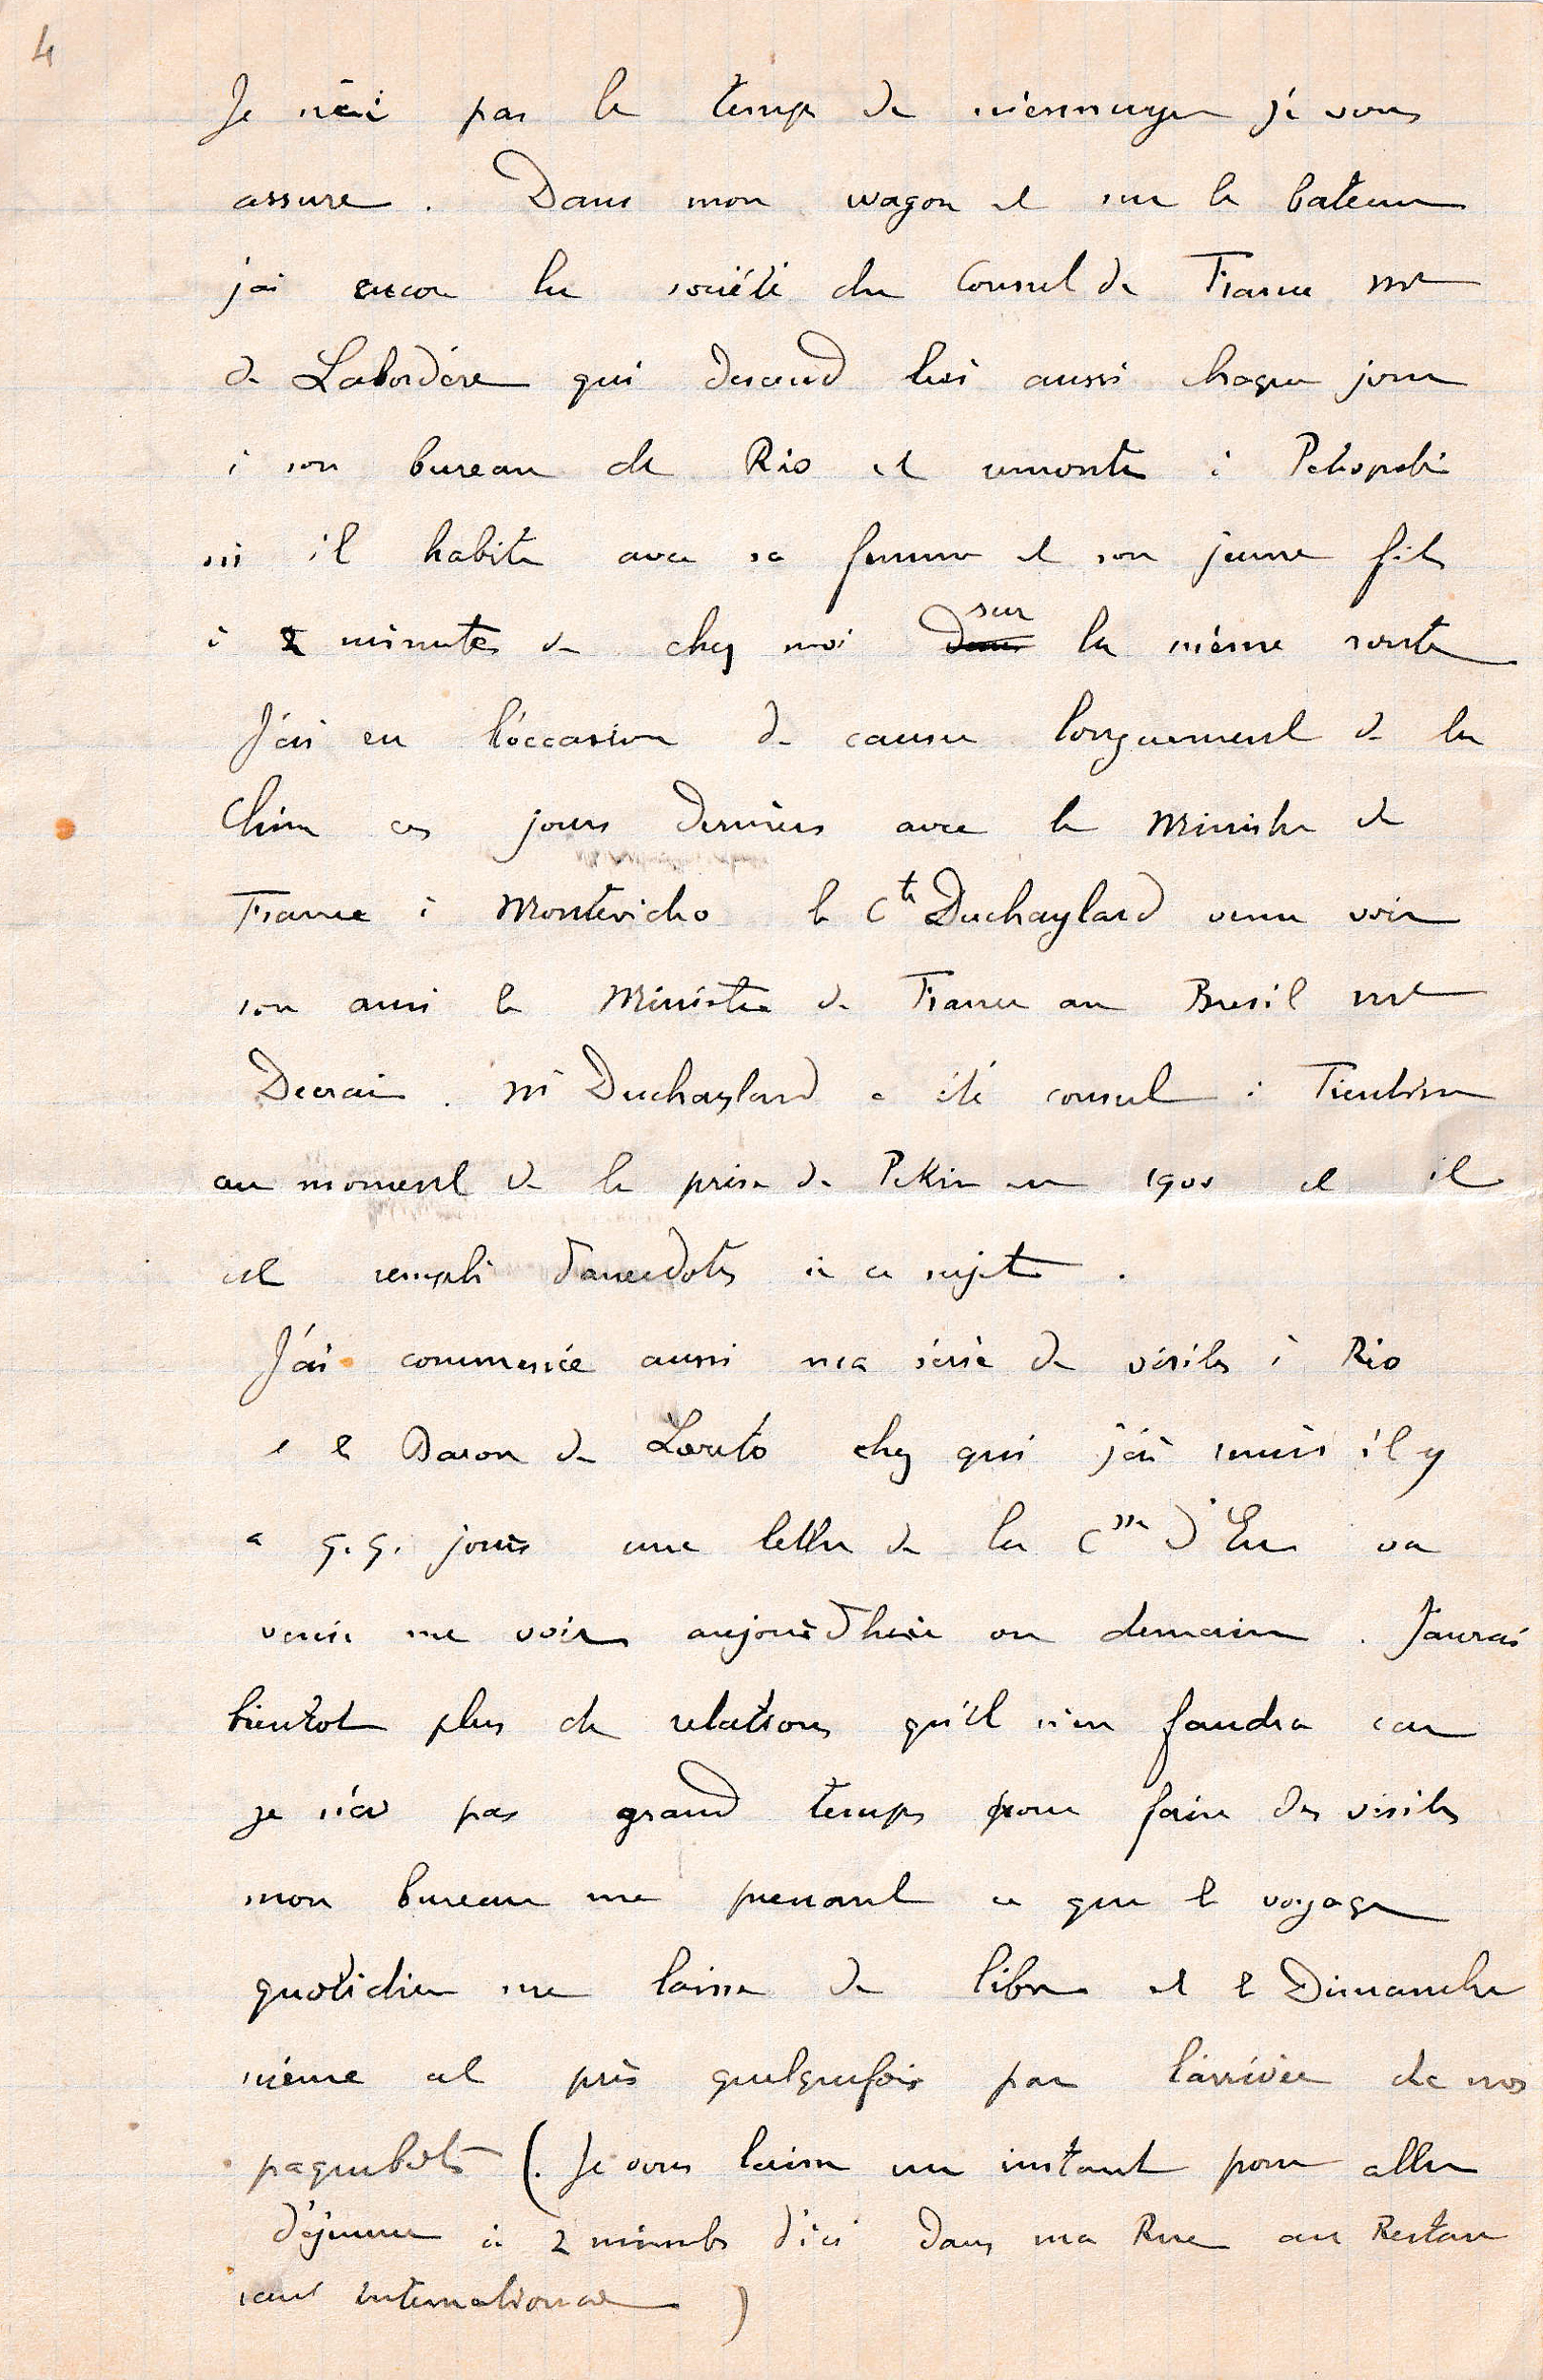 4
Je n'ai pas le temps de m'ennuyer je vous
assure. Dans mon wagon et sur le bateau
j'ai encore la société du Consul de France Mr
de Labordère qui descend lui aussi chaque jour
à son bureau de Rio et remonte à Petropolis
où il habite avec sa femme et son jeune fils
à 2 minutes de chez moi dans sur la même route
J'ai eu l'occasion de causer longuement de la
Chine ces jours derniers avec le Ministre de
France à Montevideo le Cte Duchaylard venu voir
son ami le Ministre de France au Bresil Mr
Decrais. Mr Duchaylard a été consul à Tientsin
au moment de la prise de Pekin en 1900 et il
est rempli d'anecdotes à ce sujet.
J'ai commencée aussi ma série de visites à Rio
et le Baron de Loreto chez qui j'ai remis il y
a q.q. jours une lettre de la Csse d'Eu va
venir me voir aujourd'hui ou demain. J'aurai
bientot plus de relations qu'il n'en faudra car
je n'ai pas grand temps pour faire des visites
mon bureau me prenant ce que le voyage
quotidien me laisse de libre et le Dimanche
même est pris quelquefois par l'arrivée de nos
paquebots (. Je vous laisse un instant pour aller
déjeuner à 2 minutes d'ici dans ma Rue au Restau
rant international )